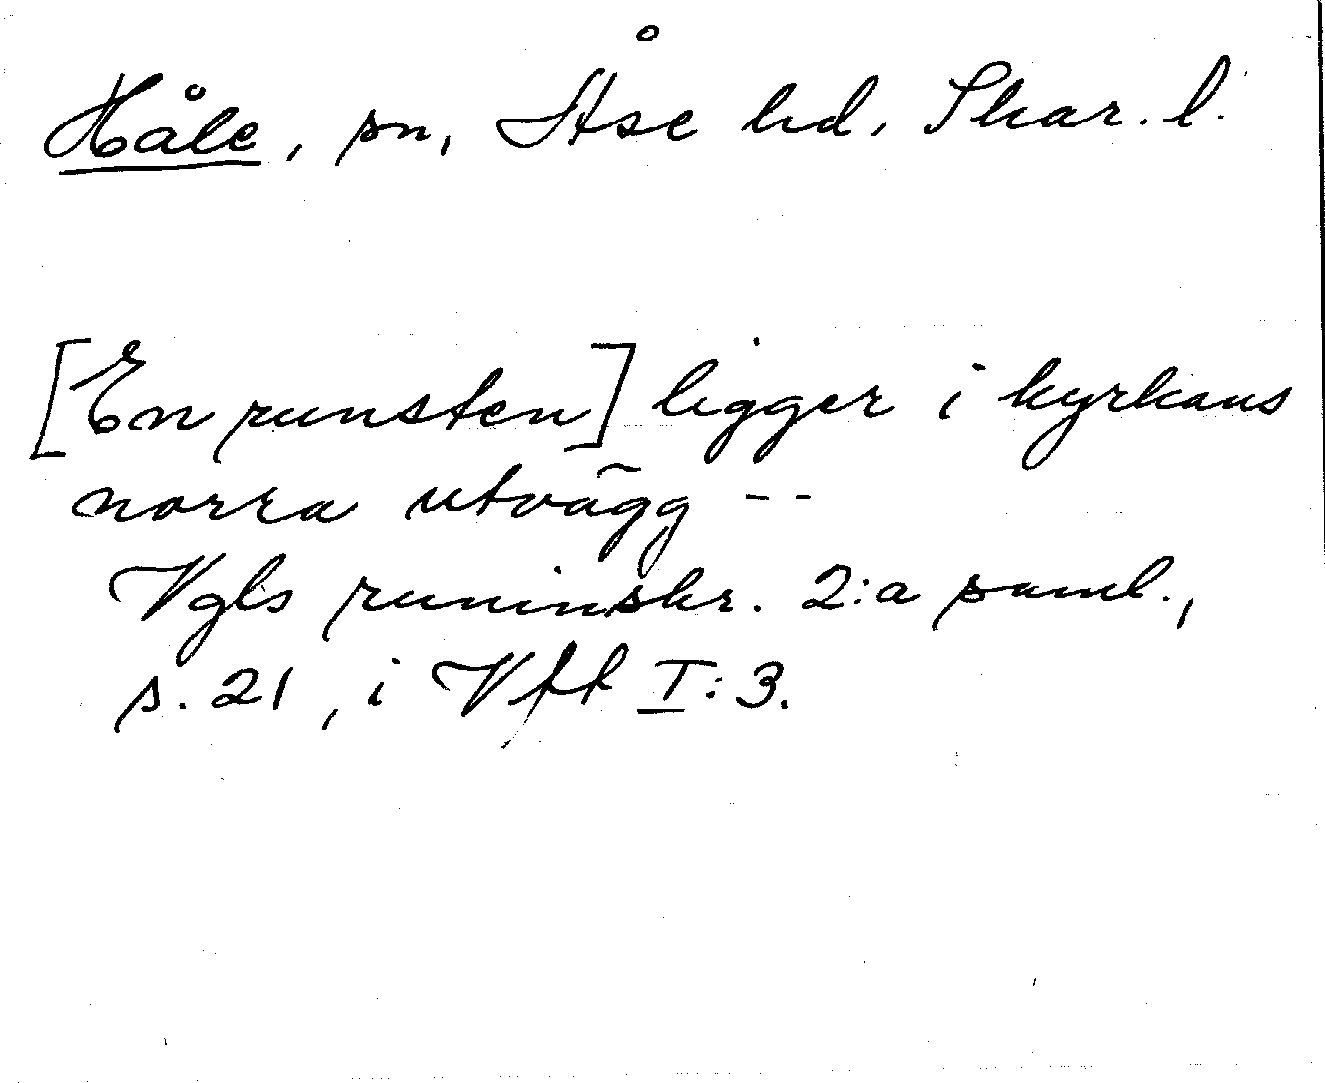 Håle, sn, Åse hd, Skar. l.
[En runsten] ligger i kyrkans
norra utvägg --
Vgls runinskr. 2:a saml.,
s. 21, i Vfft I:3.